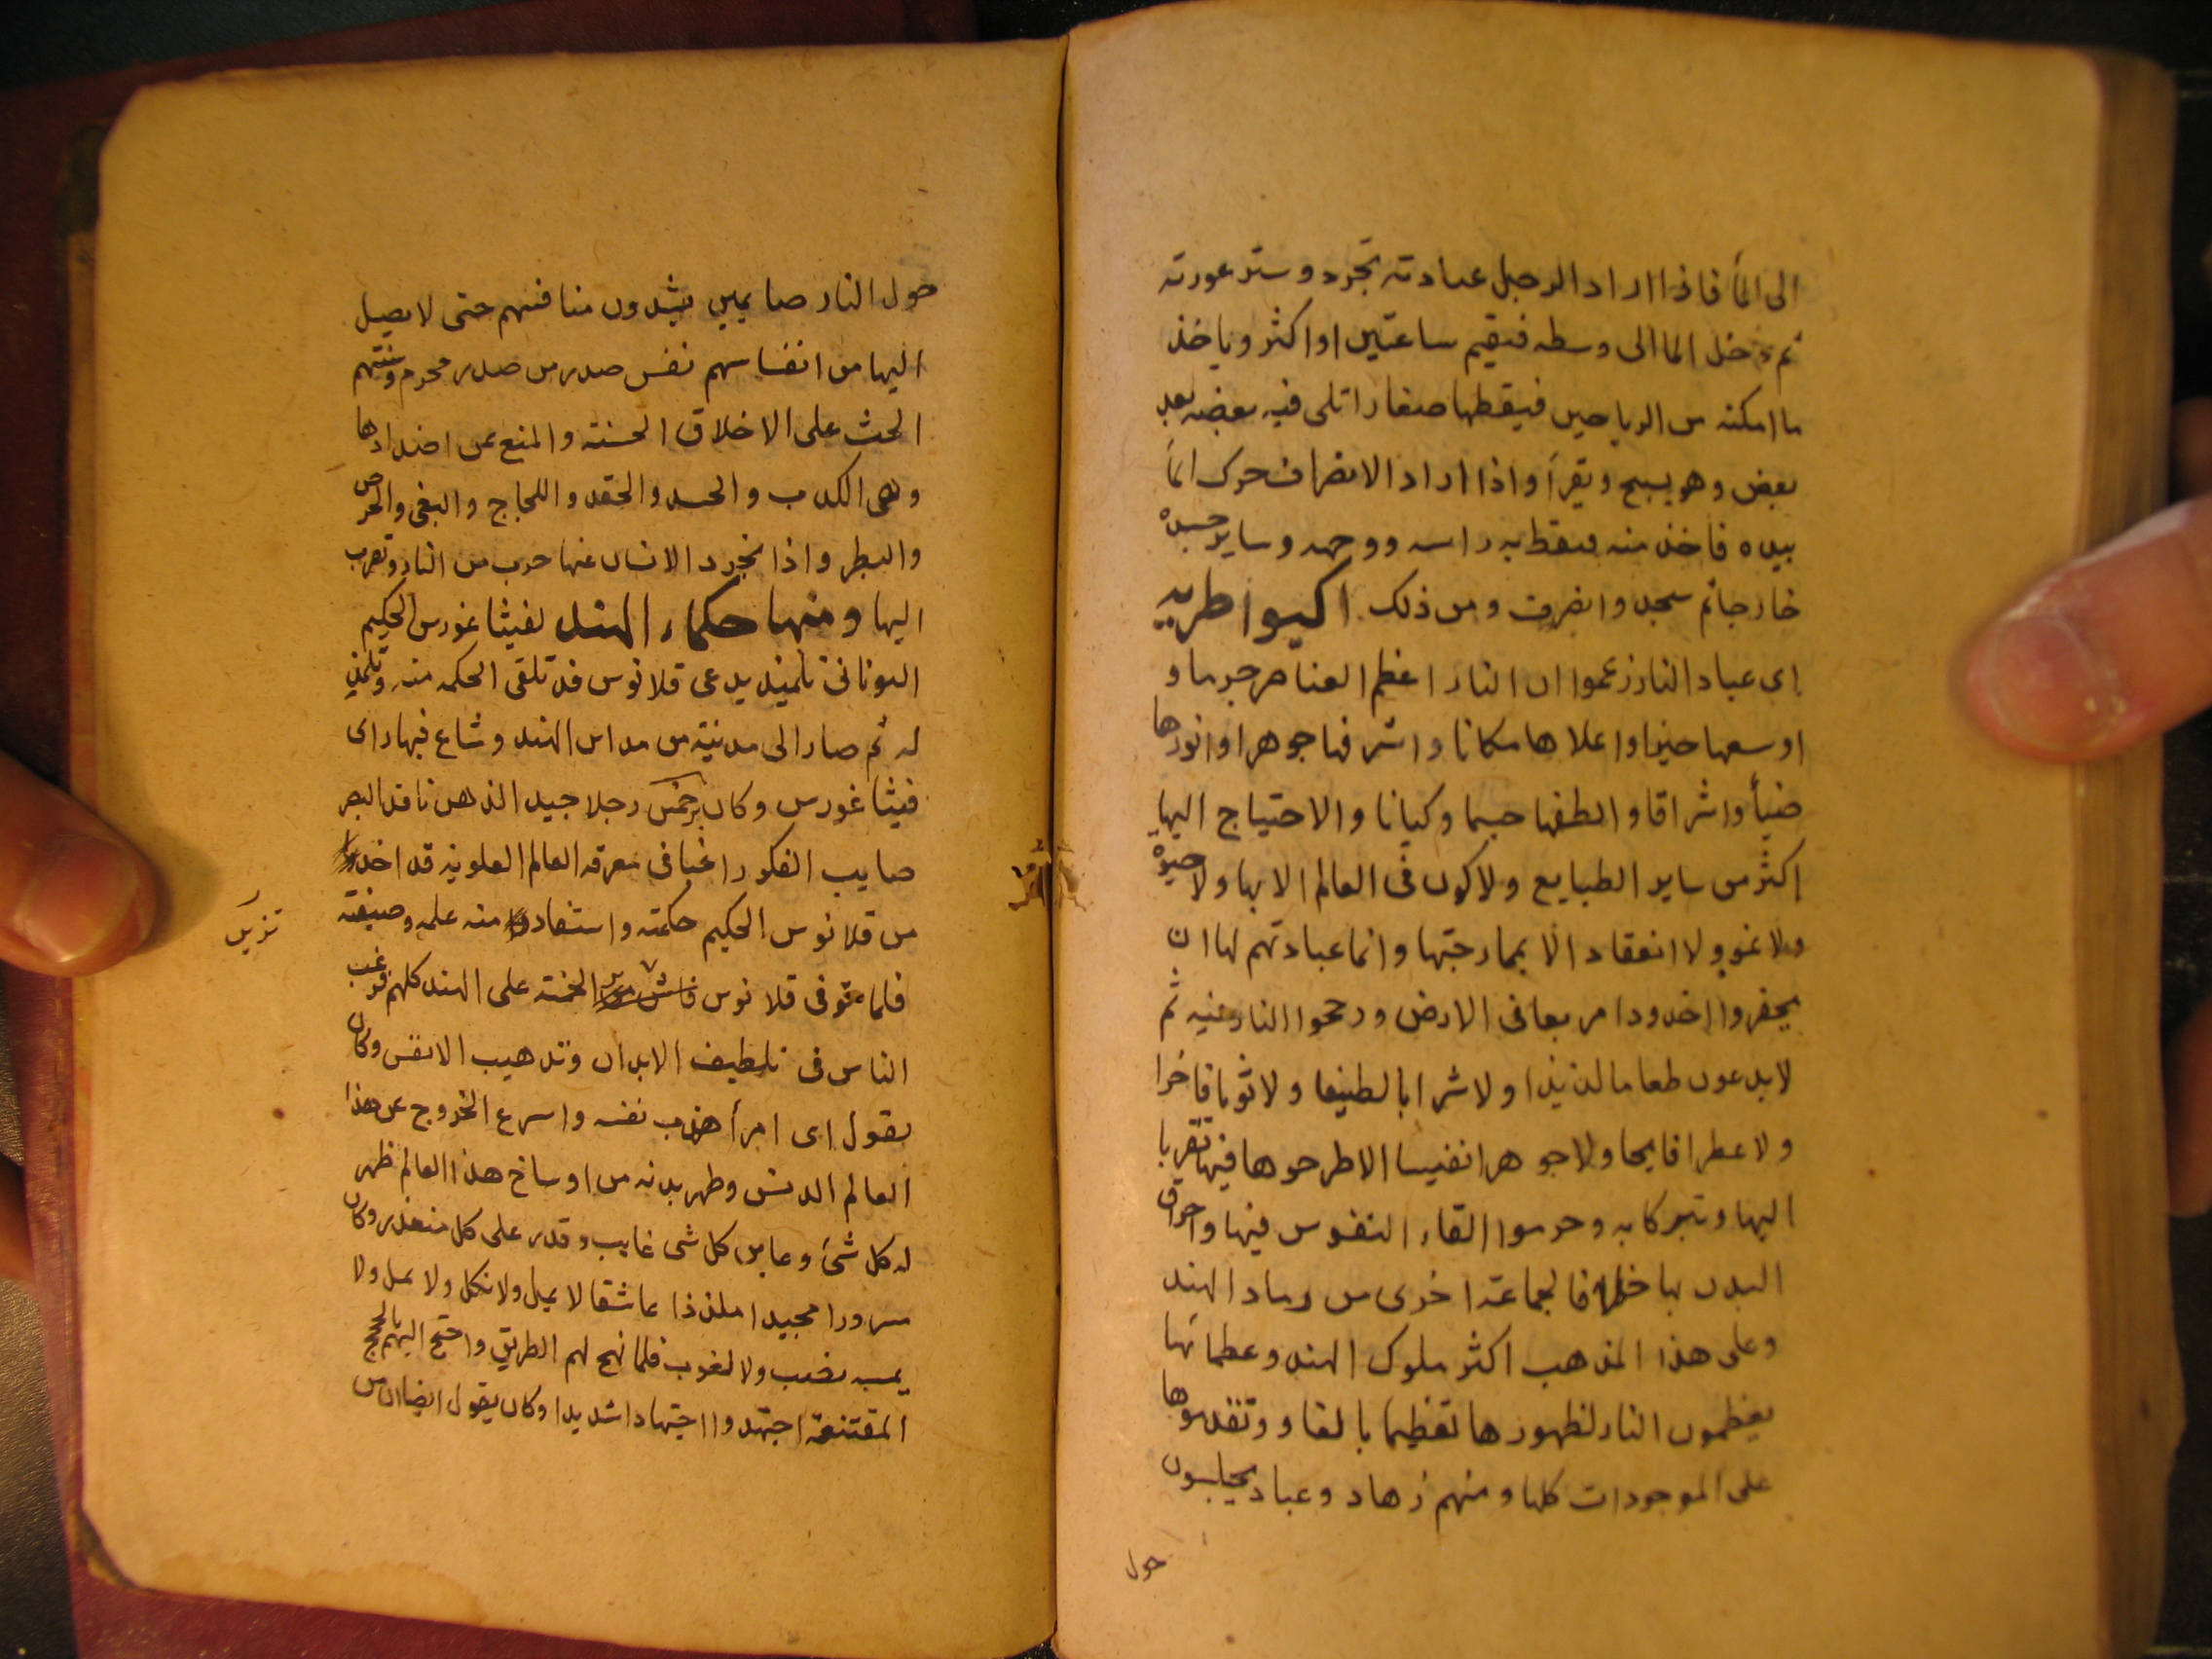 الى الماء فاذا اراد الرجل عبادته تجرد وستر عورته
ثم دخل الما الى وسطه فيقيم ساعتين او اكثر وياخذ
ما امكنه من الرياحين فيقطها صغارا تلى فيه بعضه بعد
بعض وهو يسبح ويقرأ واذا اراد الانصراف حرك الماء
بيده فاخذ منه فنقط به راسه ووجهه وساير جسده
خارجا ثم سجد وانصرف ومن ذلك اكيواطريه
اى عباد النار زعموا ان النار اعظم العناصر جرما و
اوسعها حيزا واعلاها مكانا واشرفها جوهرا وانورها
ضيأ واشراقا والطفها جسما وكيانا والاحتياج اليها
اكثر من ساير الطبايع ولا كون فى العالم الا بها ولا حيوة
ولا نمو ولا انعقاد الا بممازجتها وانما عبادتهم لها ان
يحفروا اخدودا مربعا فى الارض واججوا النار فيه ثم
لا يدعون طعاما لذيذا ولا شرابا لطيفا ولا ثوبا فاخرا
ولا عطرا فايحا ولا جوهرا نفيسا الا طرحوها فيها تقربا
اليها وتبركا به وحرموا القاء النفوس فيها واحراق
البدن بها خلافا لجماعة اخرى من زهاد الهند
وعلى هذا المذهب اكثر ملوك الهند وعظمائها
يعظمون النار لظهورها تعظيما بالغا ويقدموها
على الموجودات كلها ومنهم زهاد وعباد يجلسون
حول
حول النار صايمين يشدون منافسهم حتى لا يصل
اليها من انفاسهم نفس صدر من صدر محرم وسنتهم
الحث على الاخلاق الحسنة والمنع عن اضدادها
وهى الكذب والحسد والحقد واللجاج والبغى والحرص
والبطر واذا تجرد الانسان عنها قرب من النار وتقرب
اليها ومنها حكماء الهند لفيثاغورس الحكيم
اليونانى تلميذ يدعى قلانوس قد تلقى الحكمه منه وتلمذ
له ثم صار الى مدينة من مداين الهند وشاع فيها راى
فيثاغورس وكان برخمنس رجلا جيد الذهن نافذ البصر
صايب الفكر راغبا فى معرفه العالم العلوية قد اخذ
من قلانوس الحكيم حكمته واستفاد منه علمه وصنعته
فلما توفى قلانوس برخمنس على الهند كلهم فرغب
الناس فى تلطيف الابدان وتهذيب الانفس وكان
يقول اى امرأ هذب نفسه واسرع الخروج عن هذا
العالم الدنس وطهر بدنه من اوساخ هذا العالم ظهر
له كل شئ وعاين كل شى غايب وقدر على كل متعذر وكان
مسرورا مجيدا ملتذا عاشقا لا يمل ولا يكل ولا يمل ولا
يمسه نصب ولا لغوب فلما نهج لهم الطريق واحتج اليهم بالحجج
المقنعة اجتهدوا اجتهادا شديدا وكان يقول ايضا ان من